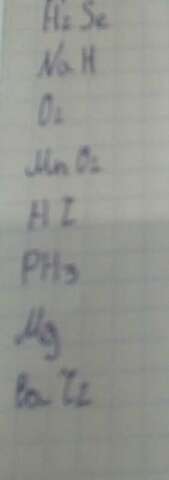 H2Se
NaH
O2
MnO2
HI
PH3
Mg
BaI2